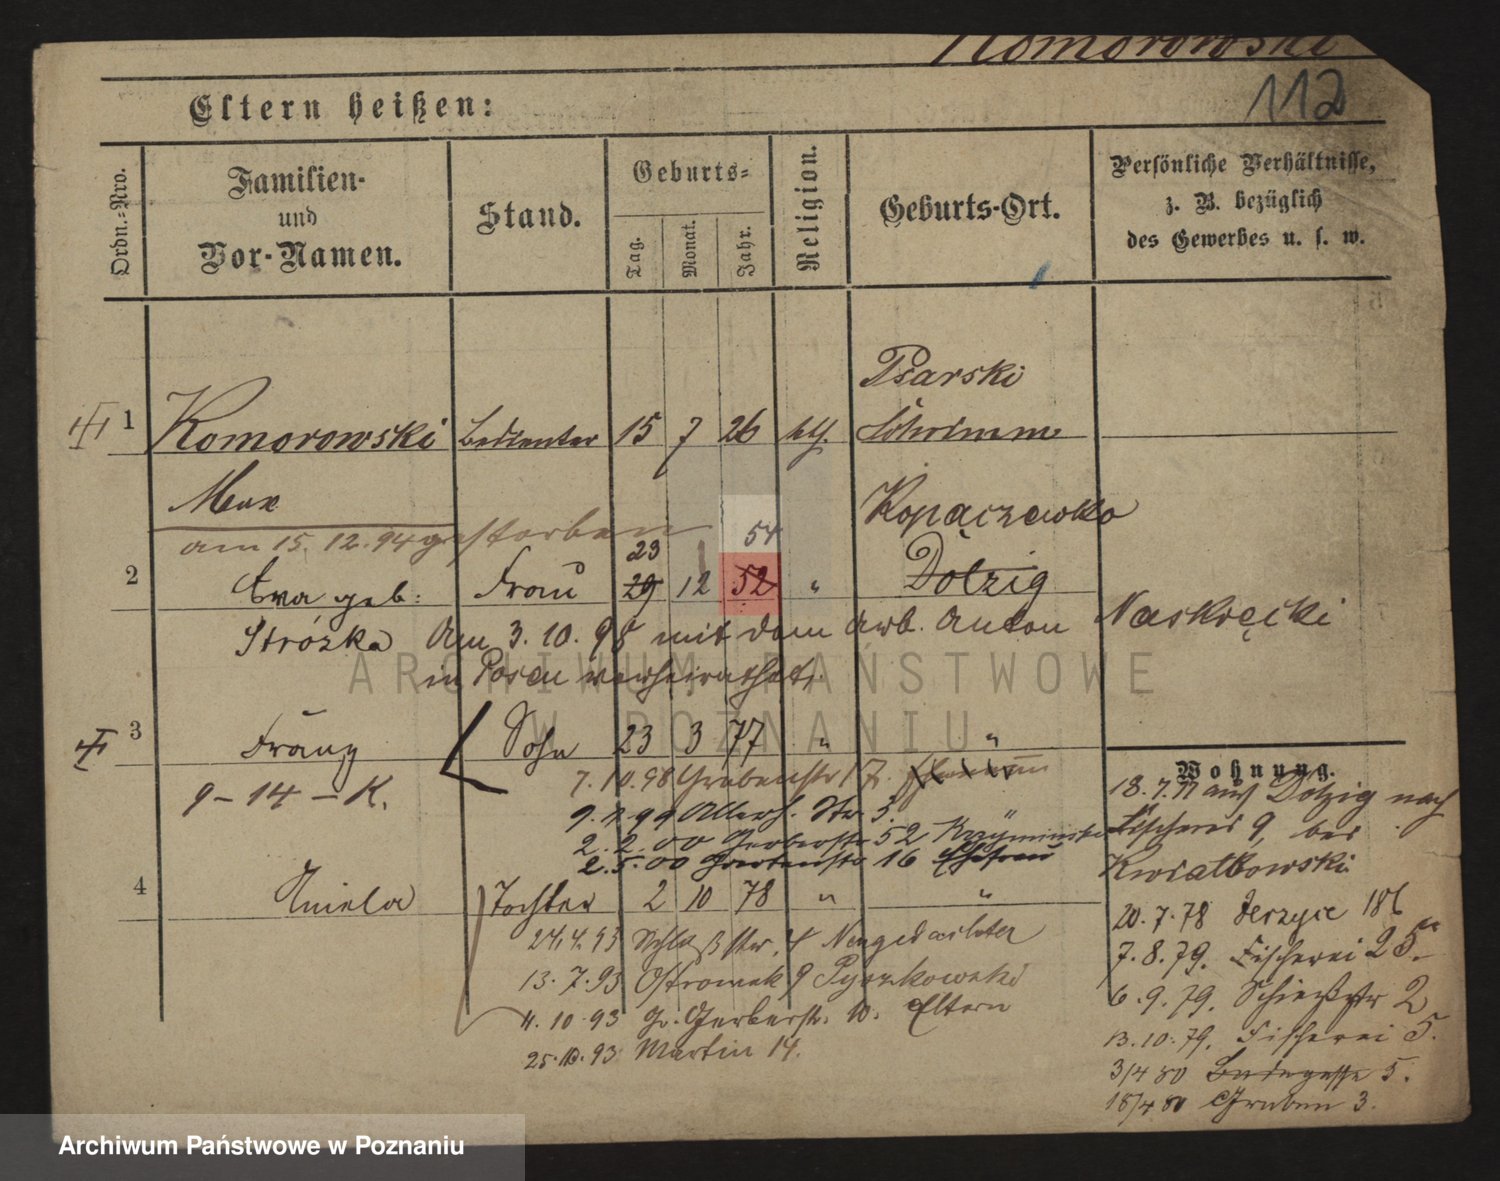 Komorowski
112
Eltern heißen:
Ordn.-Nro.
Familien-
und
Vor-Namen.
Stand.
Geburts-
Tag.
Monat.
Jahr.
Religion.
Geburts-Ort.
Persönliche Verhältnisse,
z. B. bezüglich
des Gewerbes u. s. w.
Psarski
1 Komorowski Bedienter 15 7 26 kth. Schrimm
Max
am 15. 12. 94 gestorben
54
Kopaczewko
23
2 Eva geb: Frau 29 12 52 " Dolzig
Strózka Am 3. 10. 98 mit dem Arb. Anton Naskręcki
in Posen verheirathet.
3 Franz Sohn 23 3 77 " "
9-14-K.
7. 10. 98 Grabenstr 17.
9. 7. 99 Allerh. Str 3. "
2. 2. 00 Gerberstr 52
2. 5. 00 Gartenstr 16 Ehefrau
4 Aniela Tochter 2 10 78 " "
24.4.93 Schloßstr. 4
13. 7. 93 Ostrowek 9 Pyszkowski
4. 10. 93 Gr. Gerberstr. 10. Eltern
25. 10. 93 Martin 14.
Wohnung.
18. 7. 77 aus Dolzig nach
Fischerei 9, bei
Kwiatkowski
20. 7. 78 Jerzyce 186
7. 8. 79. Fischerei 25.
6. 9. 79. Schießstr 2
13. 10. 79. Fischerei 5.
3/4 80 5.
18/4 80 Graben 3.
ARCHIWUM PAŃSTWOWE
W POZNANIU
Archiwum Państwowe w Poznaniu